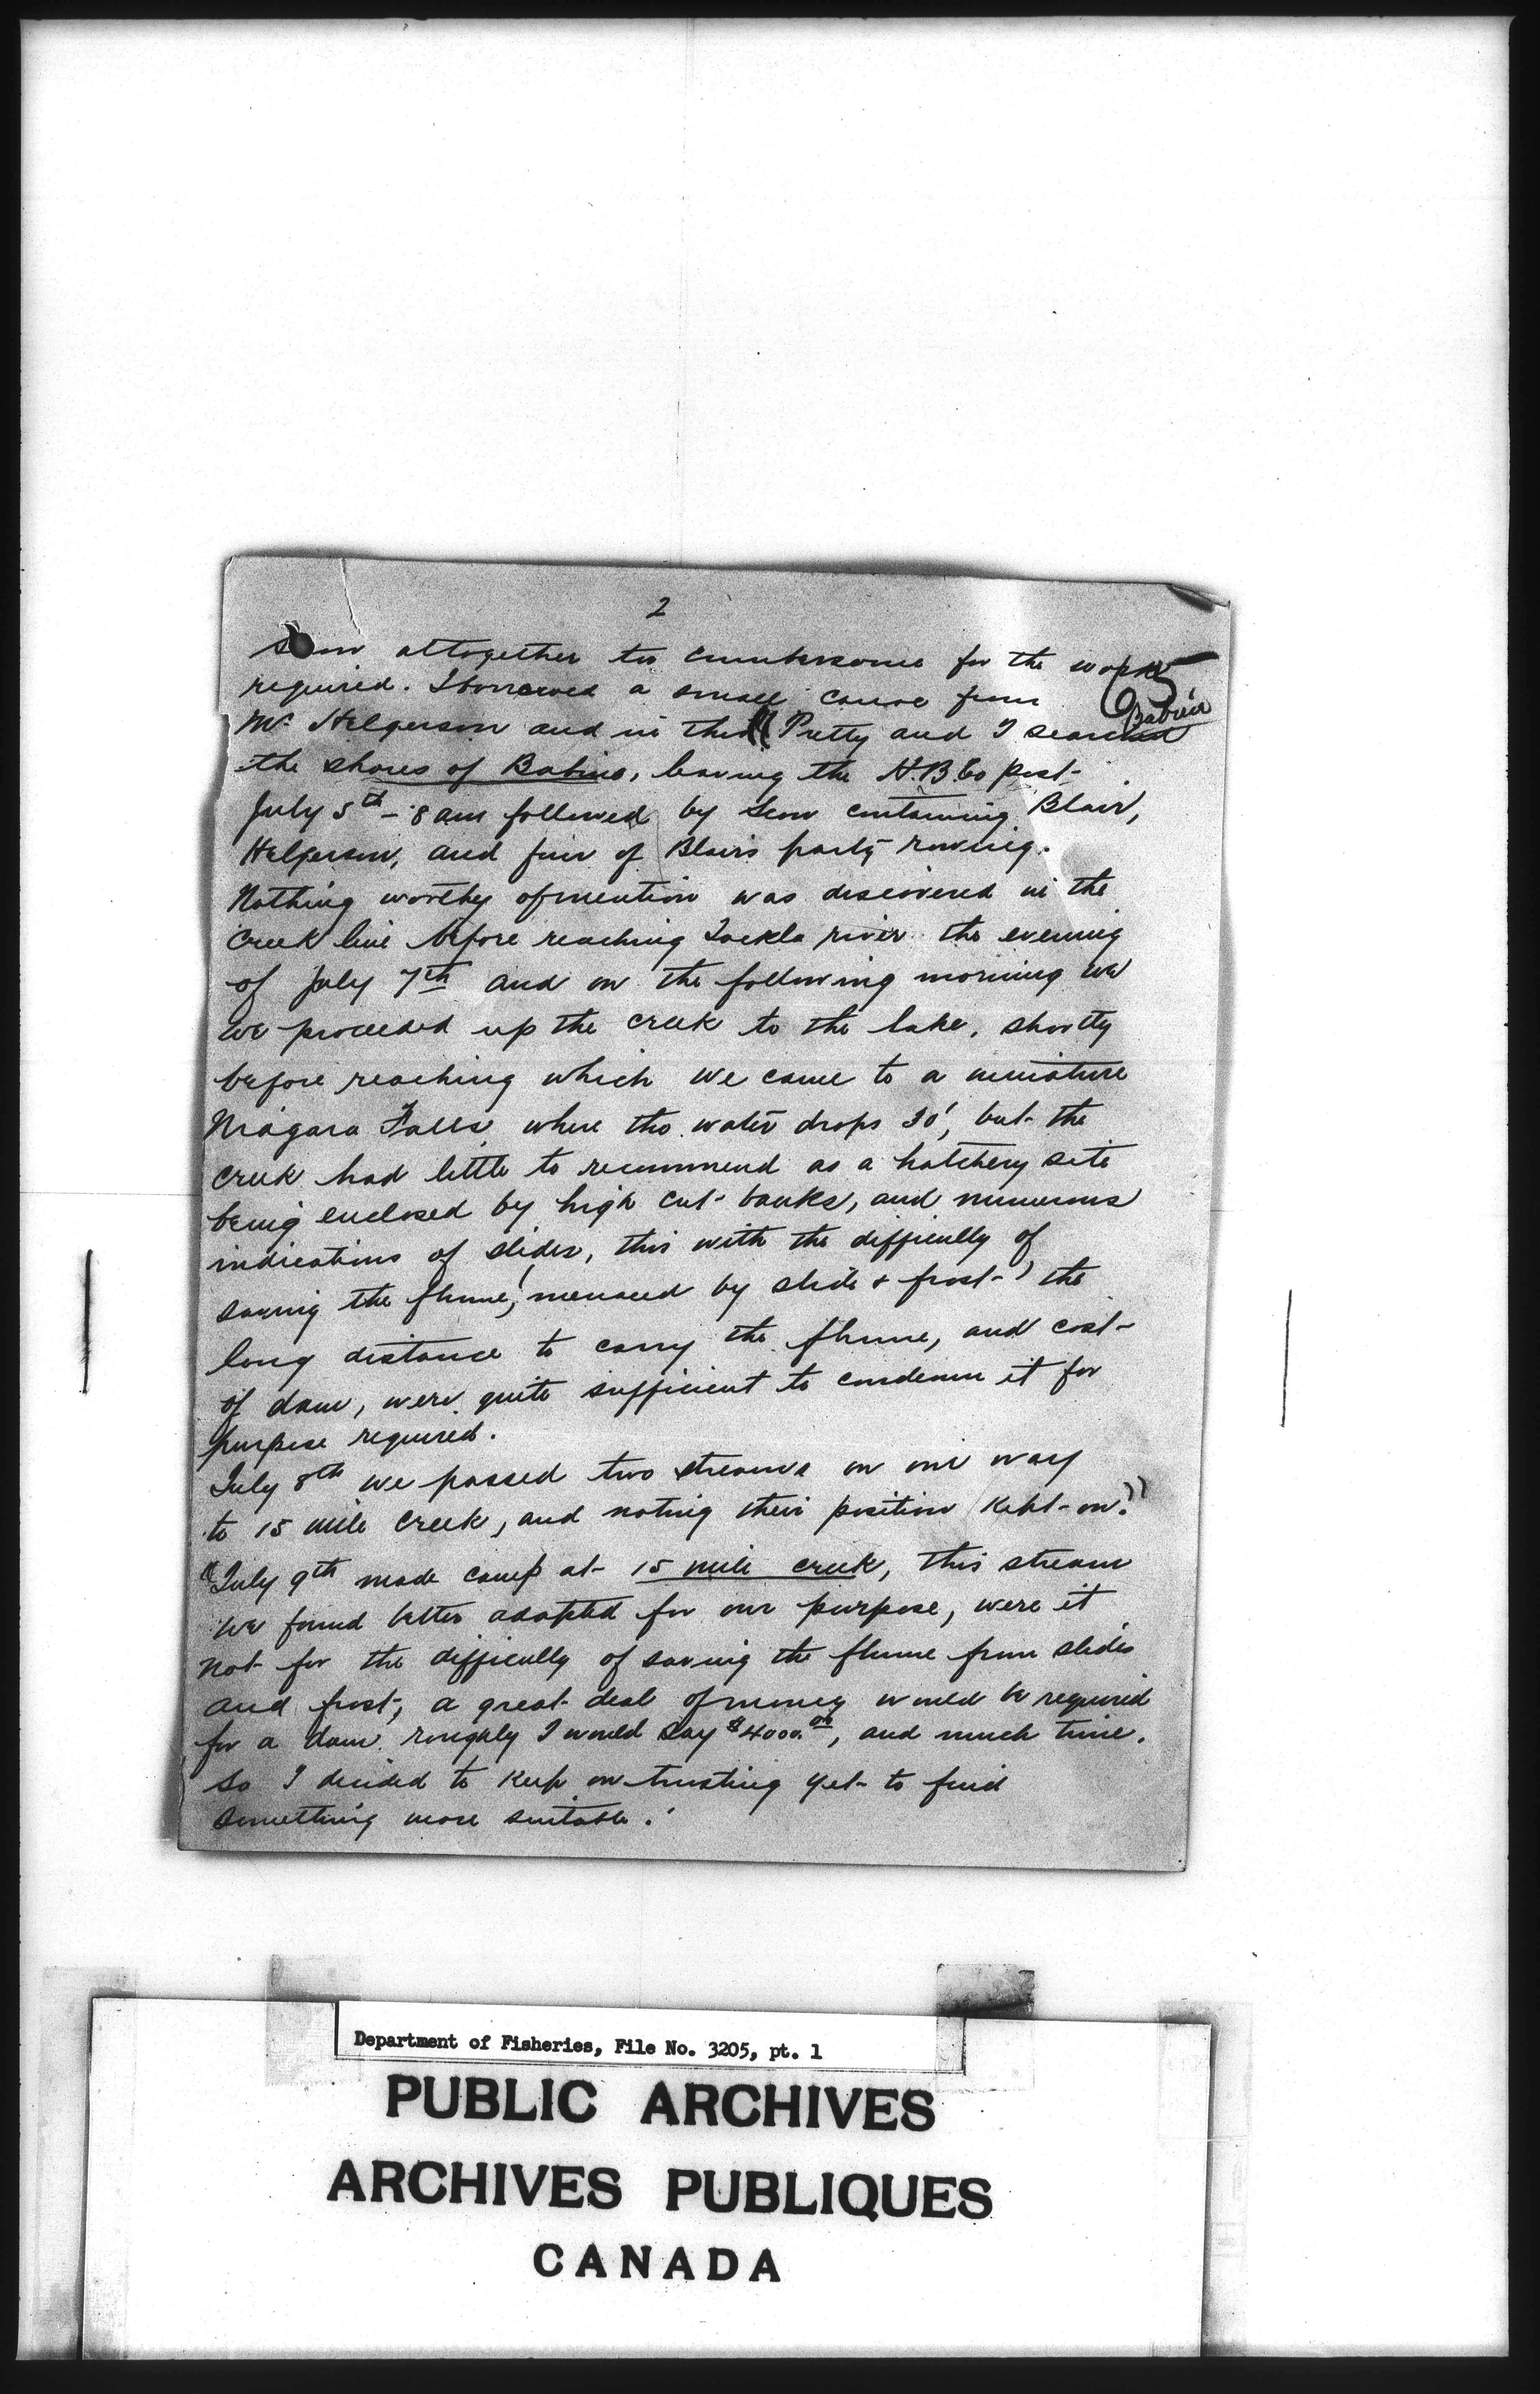 2
scow altogether too cumbersome for the work
required. I borrowed a small canoe from
65
Mr. Helgerson and in this (( Pretty and I searched
Babine
the shores of Babine, leaving the H.B.Co post
July 5th - 8 am followed by scow containing Blair,
Helgerson, and four of Blair's party rowing.
Nothing worthy of mention was discovered in the
creek line before reaching Tackla river the evening
of July 7th and on the following morning we
we proceeded up the creek to the lake, shortly
before reaching which we came to a miniature
Niagara Falls where the water drops 30', but the
creek had little to recommend as a hatchery site
being enclosed by high cut-banks, and numerous
indications of slides, this with the difficulty of
saving the flume, (menaced by slide & frost) the
long distance to carry the flume, and cost
of dam, were quite sufficient to condemn it for
purpose required.
July 8th we passed two streams on our way
to 15 mile creek, and noting their position kept on."
"July 9th made camp at 15 mile creek, this stream
we found better adapted for our purpose, were it
not for the difficulty of saving the flume from slides
and frost, a great deal of money would be required
for a dam roughly I would say $4000.00, and much time.
So I decided to keep on trusting yet to find
something more suitable.
Department of Fisheries, File No. 3205, pt. 1
PUBLIC ARCHIVES
ARCHIVES PUBLIQUES
CANADA